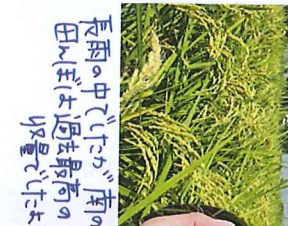 長雨の中でしたが南の
田んぼは過去最高の
収量でしたよ